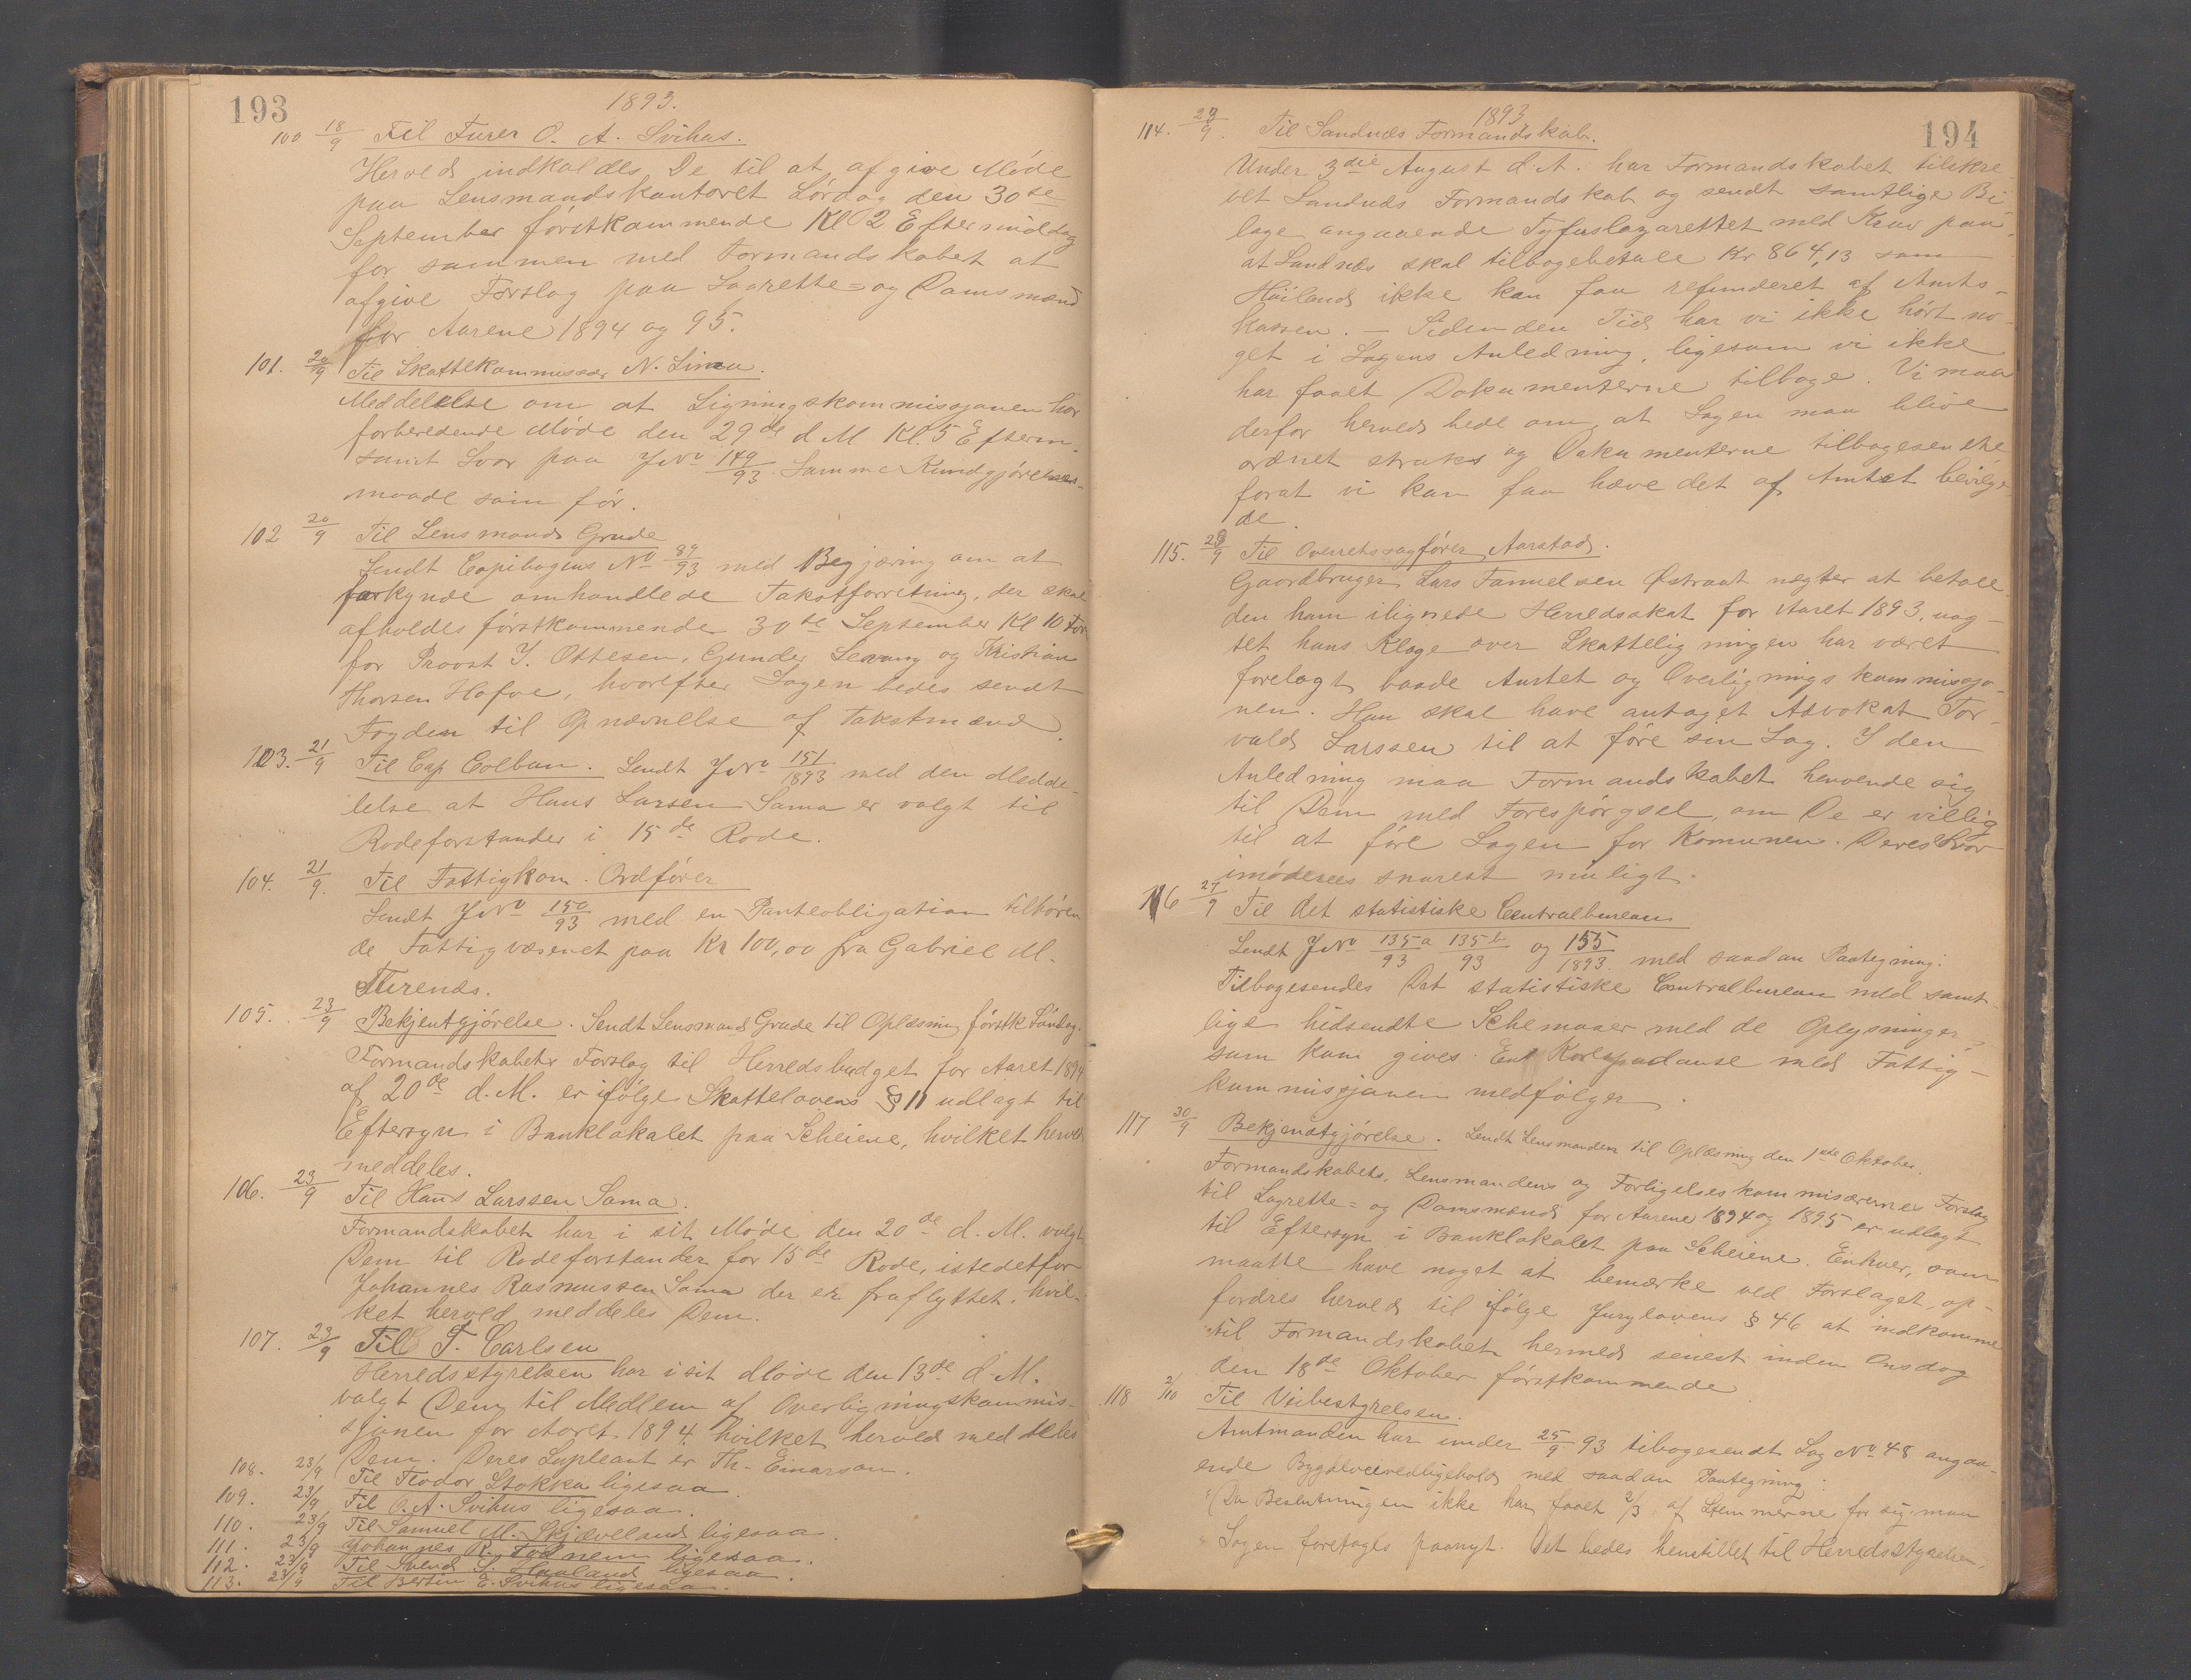 193
1893.
100 18/9 Til Furer O. A. Svihus.
Herved indkaldes De til at afgive Møde
paa Lensmandskontoret Lørdag den 30te
September førstkommende Kl 2 Eftermiddag
for sammen med Formandskabet at
afgive Forslag paa Lagrette= og Domsmænd
for Aarene 1894 og 95.
101. 20/9 Til Skattekommissær N. Lima.
Meddelelse om at Ligningskommissjonen har
forberedende Møde den 29de d M Kl. 5 Efterm.
samt Svar paa JNo 149/93. Samme Kundgjørelses-
maade som før.
102 20/9 Til Lensmand Grude
Sendt Copibogens No 89/93 med Begjæring om at
forkynde omhandlede Takstforretning, der skal
afholdes førstkommende 30te September Kl 10 For
for Provst J. Ottesen, Gunder Levang og Kristian
Thorsen Hofve, hvorefter Sagen bedes sendt
Fogden til Opnævnelse af Takstmænd.
103. 21/9 Til Cap Colban. Sendt JNo 151/1893 med den Medde-
lelse at Hans Larsen Sama er valgt til
Rodeforstander i 15de Rode.
104. 21/9. Til Fattigkom. Ordfører
Sendt JNo 150/93 med en Panteobligation tilhøren
de Fattigvæsenet paa Kr 100,00 fra Gabriel M.
Aurends.
105. 23/9 Bekjentgjørelse. Sendt Lensmand Grude til Oplæsning førstk Søndag.
Formandskabets Forslag til Herredsbudget for Aaret 1894
af 20de d. M. er ifølge Skattelovens § 11 udlagt til
Eftersyn i Banklokalet paa Scheiene, hvilket herved
meddeles.
106. 23/9 Til Hans Larssen Sama.
Formandskabet har i sit Møde den 20de d. M. valgt
Dem til Rodeforstander for 15de Rode, istedetfor
Johannes Rasmussen Sama der er fraflyttet, hvil-
ket herved meddeles Dem.
107. 23/9 Til T. Carlsen
Herredsstyrelsen har i sit Møde den 13de d. M.
valgt Dem til Medlem af Overligningskommis-
sjonen for Aaret 1894, hvilket herved meddeles
Dem. Deres Supleant er Th. Einarson.
108. 23/9 Til Teodor Stokka ligesaa.
109. 23/9 Til O. A. Svihus ligesaa.
110. 23/9 Til Samuel M. Skjæveland ligesaa.
111. 23/9 Johannes R. Todnem ligesaa.
112. 23/9 Til Svend S. Haaland ligesaa.
113. 23/9 Til Bertin E. Svihus ligesaa.
194
1893
114. 23/9. Til Sandnæs Formandskab.
Under 3die August d. A. har Formandskabet tilskre
vet Sandnæs Formandskab og sendt samtlige Bi
lage angaaende Tyfuslazarettet med Krav paa,
at Sandnæs skal tilbagebetale Kr 864,13 som
Høiland ikke kan faa refunderet af Amts-
kassen. — Siden den Tid har vi ikke hørt no-
get i Sagens Anledning, ligesom vi ikke
har faaet Dokumenterne tilbage. Vi maa
derfor herved bede om, at Sagen maa blive
ordnet straks og Dokumenterne tilbagesendte
forat vi kan faa hæve det af Amtet bevilge-
de.
115. 23/9 Til Overretssagfører Aarstad.
Gaardbruger Lars Samuelsen Østraat nægter at betale
den ham ilignede Herredsskat for Aaret 1893, uag-
tet hans Klage over Skatteligningen har været
forelagt baade Amtet og Overlignings kommissjo-
nen. Han skal have antaget Advokat Tor-
vald Larssen til at føre sin Sag. I den
Anledning maa Formandskabet henvende sig
til Dem med Forespørgsel, om De er villig
til at føre Sagen for Komunen. Deres Svar
imødesees snarest muligt.
116 27/9 Til det statistiske Centralbureau
Sendt JNo 135a/93 135b/93 og 155/1893 med saadan Paategning:
Tilbagesendes Det statistiske Centralbureau med samt
lige hidsendte Schemaer med de Oplysninger,
som kan gives. En Korespodanse med Fattig-
kommissjonen medfølger.
117 30/9 Bekjendtgjørelse. Sendt Lensmanden til Oplæsning den 1ste Oktober.
Formandskabets, Lensmandens og Forligelseskommisærernes Forslag
til Lagrette= og Domsmænd for Aarene 1894 og 1895 er udlagt
til Eftersyn i Banklokalet paa Scheiene. Enhver, som
maatte have noget at bemærke ved Forslaget, op-
fordres herved til ifølge Jurylovens § 46 at indkomme
til Formandskabet hermed senest inden Onsdag
den 18de Oktober førstkommende
118 2/10 Til Veibestyrelsen.
Amtmanden har under 25/9 93 tilbagesendt Sag No 48 angaa-
ende Bygdeveivedligehold med saadan Paategning:
"Da Beslutningen ikke har faaet 2/3 af Stemmerne for sig maa
" Sagen foretages paanyt. Det bedes henstillet til Herredsstyrelsen,